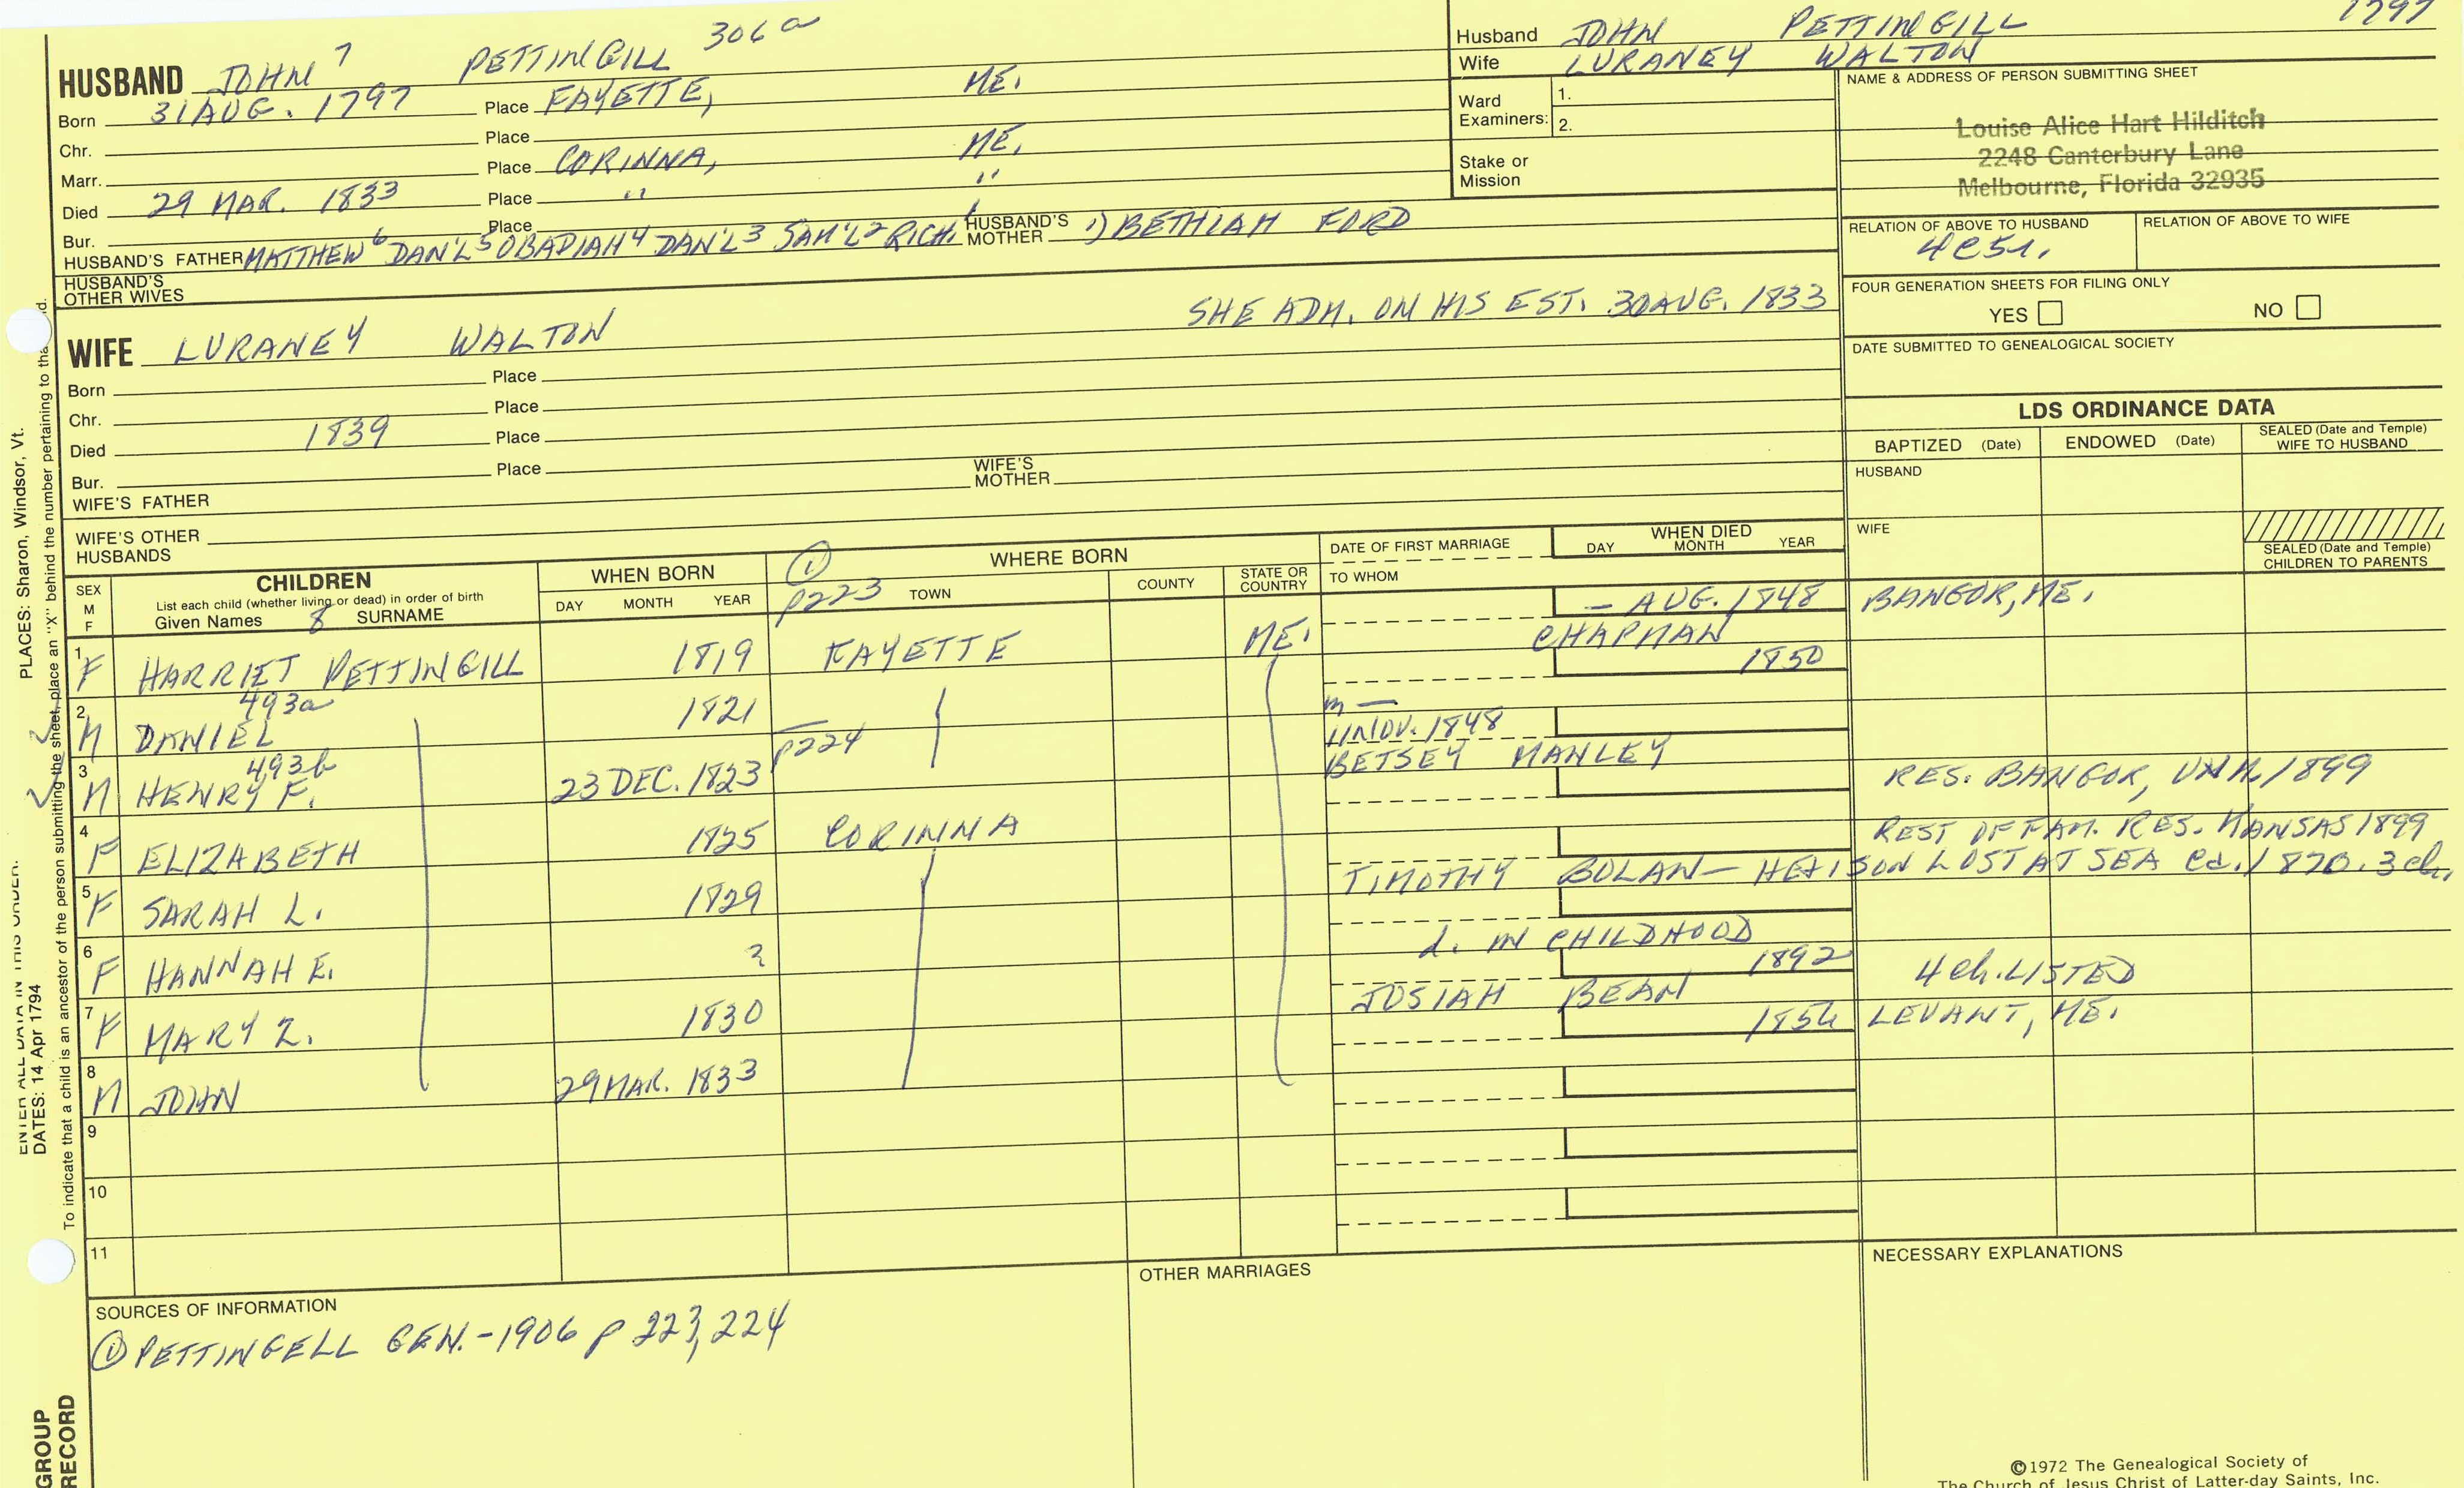 HUSBAND JOHN 7 PETTINGILL 306a
Born 31 AUG. 1797 Place FAYETTE, ME.
Chr. Place
Marr. Place CORINNA, ME.
Died 29 MAR. 1833 Place " "
Bur. Place
HUSBAND'S FATHER MATTHEW 6 DAN'L 5 OBADIAH 4 DAN'L 3 SAM'L 2 RICH. 1 HUSBAND'S MOTHER 1) BETHIAH FORD
HUSBAND'S OTHER WIVES
SHE ADM. ON HIS EST. 30 AUG. 1833
WIFE LURANEY WALTON
Born Place
Chr. Place
Died 1839 Place
Bur. Place
WIFE'S FATHER WIFE'S MOTHER
WIFE'S OTHER HUSBANDS
Husband JOHN PETTINGILL 1797
Wife LURANEY WALTON
Ward Examiners: 1.
2.
Stake or Mission
NAME & ADDRESS OF PERSON SUBMITTING SHEET
Louise Alice Hart Hilditch
2248 Canterbury Lane
Melbourne, Florida 32935
RELATION OF ABOVE TO HUSBAND RELATION OF ABOVE TO WIFE
4C5r.
FOUR GENERATION SHEETS FOR FILING ONLY
YES NO
DATE SUBMITTED TO GENEALOGICAL SOCIETY
LDS ORDINANCE DATA
BAPTIZED (Date) ENDOWED (Date) SEALED (Date and Temple) WIFE TO HUSBAND
HUSBAND
WIFE
SEALED (Date and Temple) CHILDREN TO PARENTS
SEX M F
CHILDREN
List each child (whether living or dead) in order of birth
Given Names 8 SURNAME
WHEN BORN
DAY MONTH YEAR
1 p223
WHERE BORN
TOWN COUNTY STATE OR COUNTRY
DATE OF FIRST MARRIAGE
TO WHOM
WHEN DIED
DAY MONTH YEAR
1 F HARRIET PETTINGILL 1819 FAYETTE ME. CHAPMAN — AUG. 1848 BANGOR, ME.
2 M 493a DANIEL 1821 m — 1850
3 M 493b HENRY F. 23 DEC. 1823 p224 11 NOV. 1848 BETSEY MANLEY
RES. BANGOR, UNM. 1899
4 F ELIZABETH 1825 CORINNA
REST OF FAM. RES. KANSAS 1899
5 F SARAH L. 1829 TIMOTHY BOLAN — HE & 1 SON LOST AT SEA Cd. 1870. 3 ch.
6 F HANNAH E. ? d. IN CHILDHOOD
7 F MARY Z. 1830 JOSIAH BEAN 1892 4 Ch. LISTED
8 M JOHN 29 MAR. 1833 LEVANT, ME.
9
10
11
SOURCES OF INFORMATION
1 PETTINGELL GEN. - 1906 p 223, 224
OTHER MARRIAGES
NECESSARY EXPLANATIONS
©1972 The Genealogical Society of
The Church of Jesus Christ of Latter-day Saints, Inc.
ENTER ALL DATA IN THIS ORDER:
DATES: 14 Apr 1794 PLACES: Sharon, Windsor, Vt.
To indicate that a child is an ancestor of the person submitting the sheet, place an "X" behind the number pertaining to
GROUP
RECORD